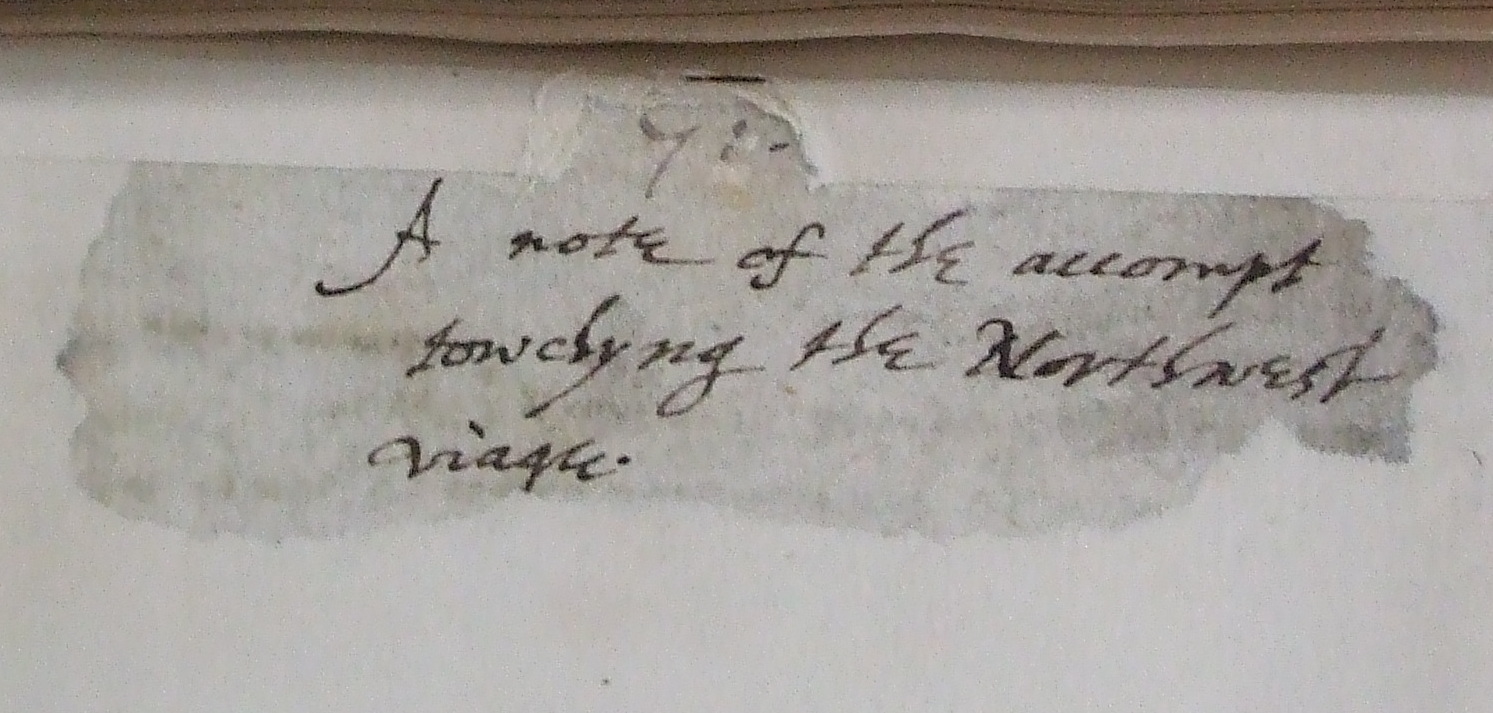 A note of the accompt
towchyng the Northwest
viage.